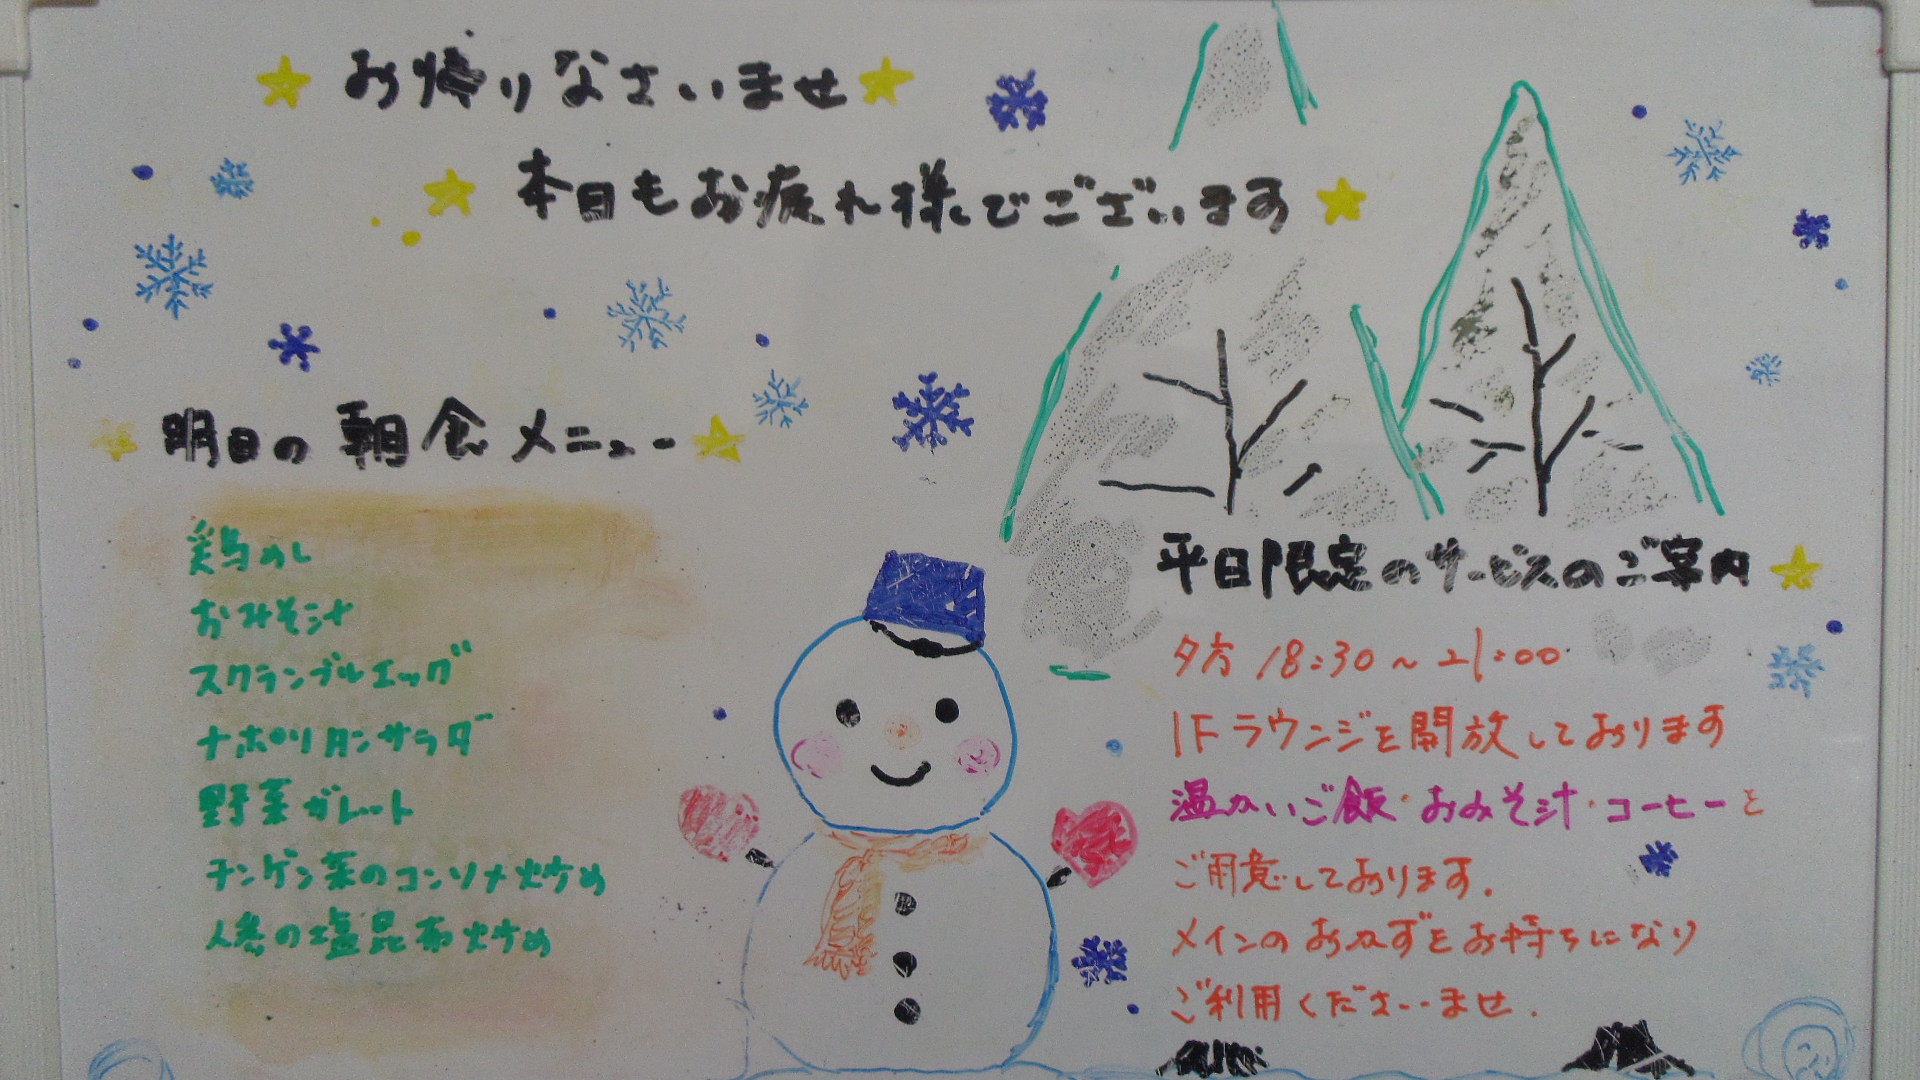 お帰りなさいませ
本日もお疲れ様でございます
明日の朝食メニュー
鶏めし
おみそ汁
スクランブルエッグ
ナポリタンサラダ
野菜ガレット
チンゲン菜のコンソメ炒め
人参の塩昆布炒め
平日限定のサービスのご案内
夕方 18:30～21:00
1Fラウンジを開放しております
温かいご飯・おみそ汁・コーヒーを
ご用意しております.
メインのおかずをお持ちになり
ご利用くださいませ.